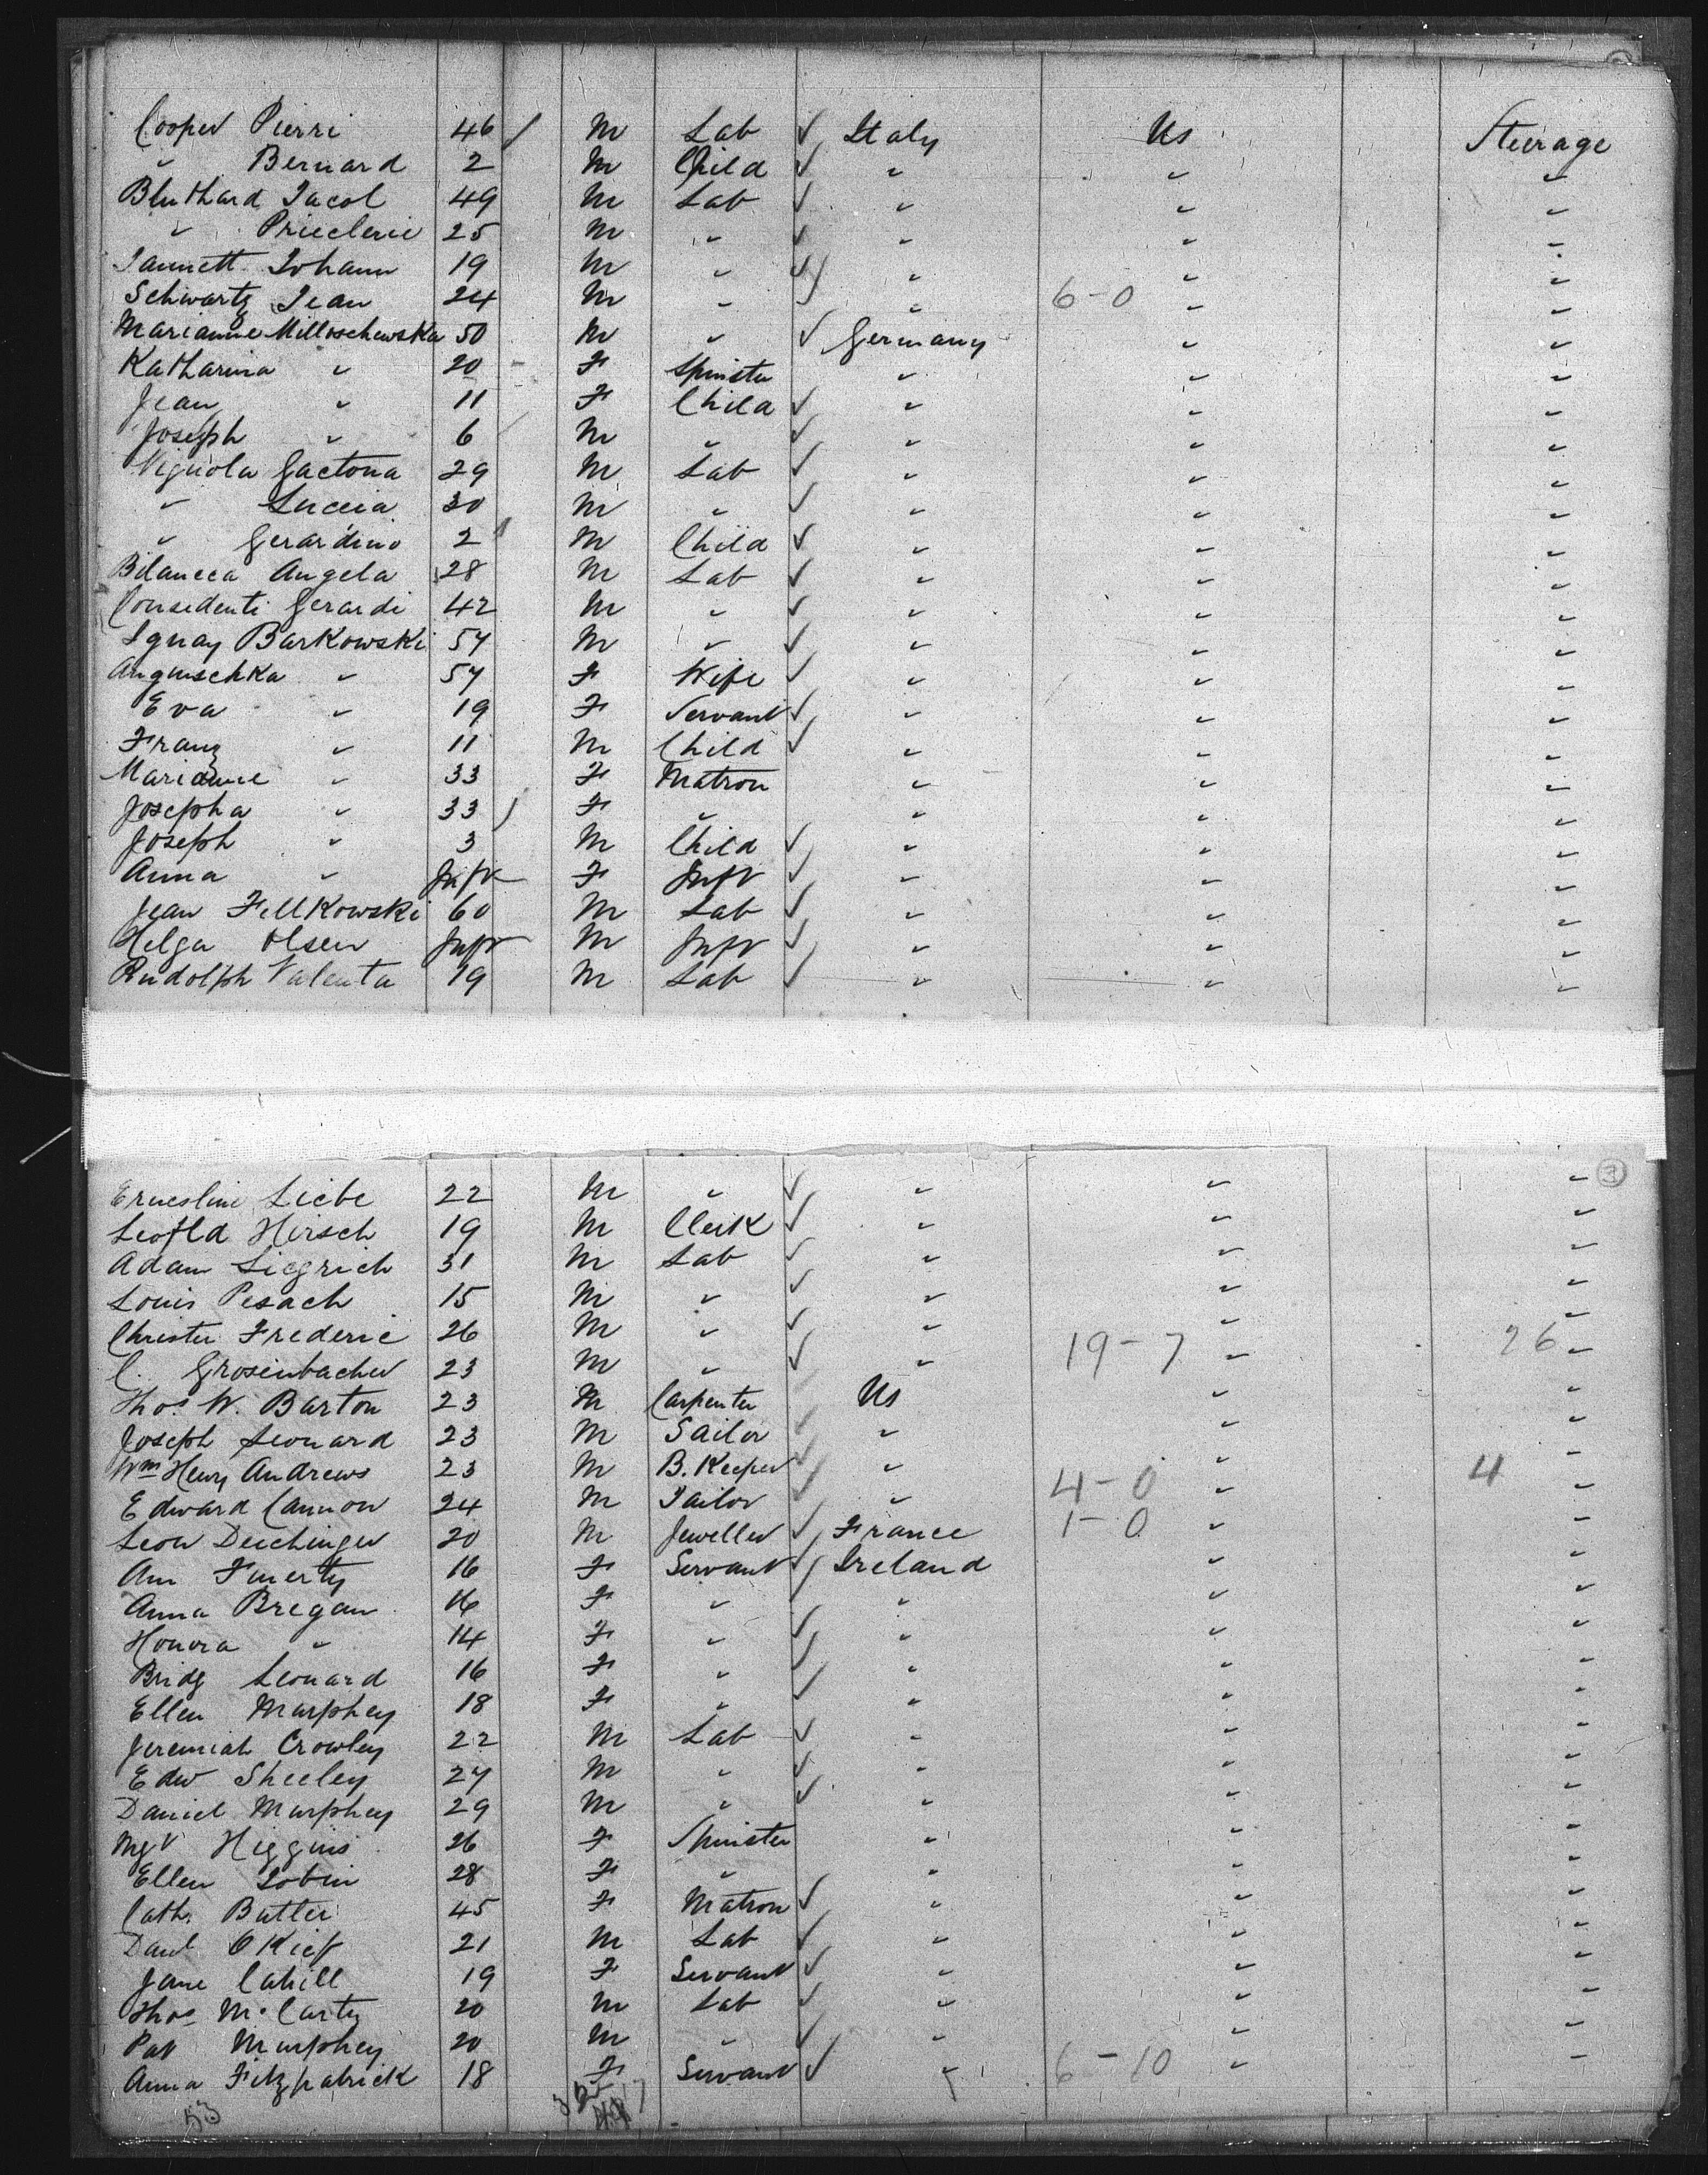 Cooper Pierri 46 / M Lab ✓ Italy Us Steerage
" Bernard 2 M Child ✓ " " "
Bluthard Jacol 49 M Lab ✓ " " "
" 25 M " ✓ " " "
Jannett Johann 19 M " ✓/ " " "
Schwartz Jean 24 M " " 6-0 " "
Marianne Milloschewska 50 M " ✓ Germany " "
Katharina " 20 - F Spinster " " "
Jean " 11 F Child ✓ " " "
Joseph " 6 M " ✓ " " "
Vignola Gaetona 29 M Lab ✓ " " "
" Luccia 30 M " ✓ " " "
" Gerardino 2 M Child ✓ " " "
Bilancca Angela 28 M Lab ✓ " " "
Consedenti Gerardi 42 M " ✓ " " "
Ignay Barkowski 57 M " ✓ " " "
Anguschka " 57 F Wife ✓ " " "
Eva " 19 F Servant ✓ " " "
Franz " 11 M Child ✓ " " "
Marianne " 33 F Matron " " "
Josepha " 33 / F " " " "
Joseph " 3 M Child ✓ " " "
Anna " Inft F Inft ✓ " " "
Jean Fellkowski 60 M Lab ✓ " " "
Helga Olsen Inft M Inft ✓ " " "
Rudolph Valenta 19 M Lab ✓ " " "
3
Ernestine Liebe 22 M " ✓ " " "
Leopld Hirsch 19 M Clerk ✓ " " "
Adam Siegrich 31 M Lab ✓ " " "
Louis Pesach 15 M " ✓ " " "
Christen Frederic 26 M " ✓ " " "
C. Grosenbacher 23 M " ✓ " 19-7 " 26 "
Thos W. Barton 23 M Carpenter Us " "
Joseph Leonard 23 M Sailor ✓ " " "
Wm Henry Andrews 23 M B. Keeper ✓ " " "
Edward Cannon 24 M Tailor ✓ " 4-0 " 4 "
Leon Deichinger 20 M Jeweller ✓ France 1-0 " "
Ann Finerty 16 F Servant ✓/ Ireland " "
Anna Bregan 16 F " " " "
Honora " 14 F " ✓ " " "
Bridg Leonard 16 F " ✓ " " "
Ellen Murphey 18 F " ✓ " " "
Jeremiah Crowley 22 M Lab ✓ " " "
Edw Sheeley 27 M " ✓ " " "
Daniel Murphey 29 M " ✓ " " "
Mgt Higgins 26 F Spinster " " "
Ellen Tobin 28 F " " " "
Cath. Butler 45 F Matron ✓ " " "
Danl O Kief 21 M Lab ✓ " " "
Jane Cahill 19 F Servant ✓ " " "
Thos McCarty 20 M Lab ✓ " " "
Pat Murphey 20 M " ✓ " " "
Anna Fitzpatrick 18 F Servant ✓ " 6-10 " "
53